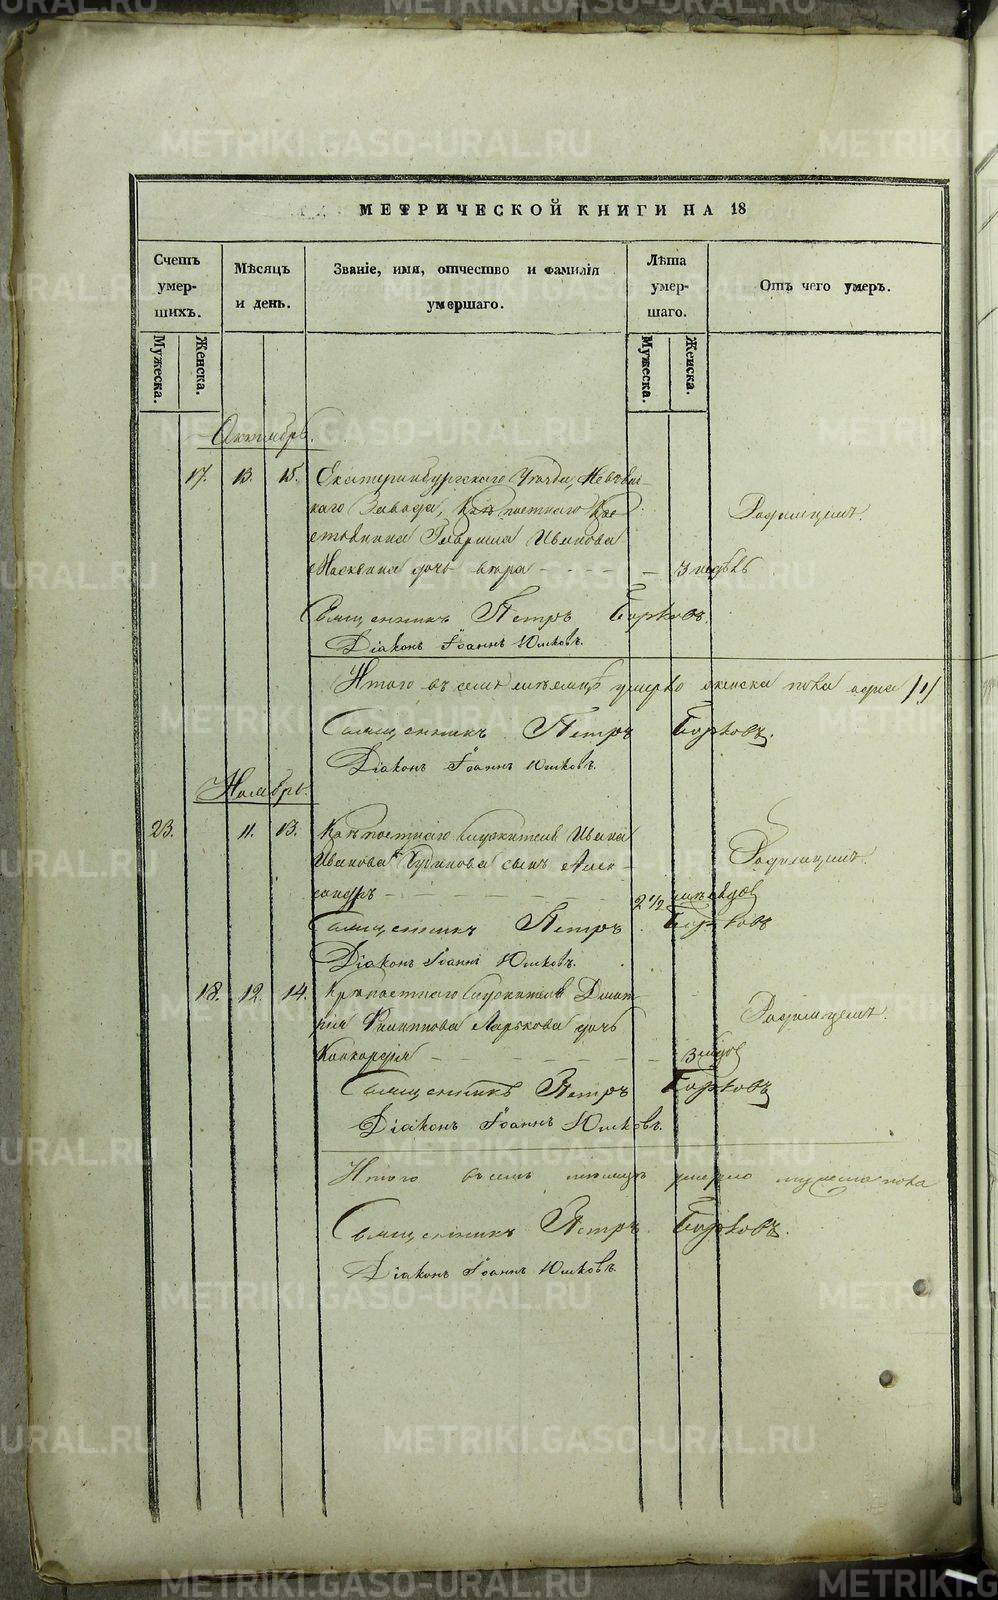 METRIKI.GASO-URAL.RU
МЕТРИЧЕСКОЙ КНИГИ НА 18
Счетъ умер- шихъ.
Мѣсяцъ и день.
Званіе, имя, отчество и фамилія умершаго.
Лѣта умер- шаго.
Отъ чего умеръ.
Мужеска.
Женска.
Мужеска.
Женска.
Октябрь.
17. 13. 15. Екатеринбургскаго Уѣзда,
каго Завода,
Иванова
дочь 3
Родимцемъ.
Священникъ Петръ
Діаконъ Іоаннъ Юшковъ.
Итого въ семъ мѣсяцѣ умерло женска пола одна /1/
Священникъ Петръ
Діаконъ Іоаннъ Юшковъ.
Ноябрь.
23. 11. 13. Крѣпостнаго служителя Ивана
Иванова сынъ Алек-
сандръ 2 1/2
Родимцемъ.
Священникъ Петръ
Діаконъ Іоаннъ Юшковъ.
18. 12. 14. Крѣпостнаго служителя Дмит-
рія Филиппова дочь
Конкордія 3
Родимцемъ.
Священникъ Петръ
Діаконъ Іоаннъ Юшковъ.
Итого въ семъ мѣсяцѣ умерло мужеска пола
Священникъ Петръ
Діаконъ Іоаннъ Юшковъ